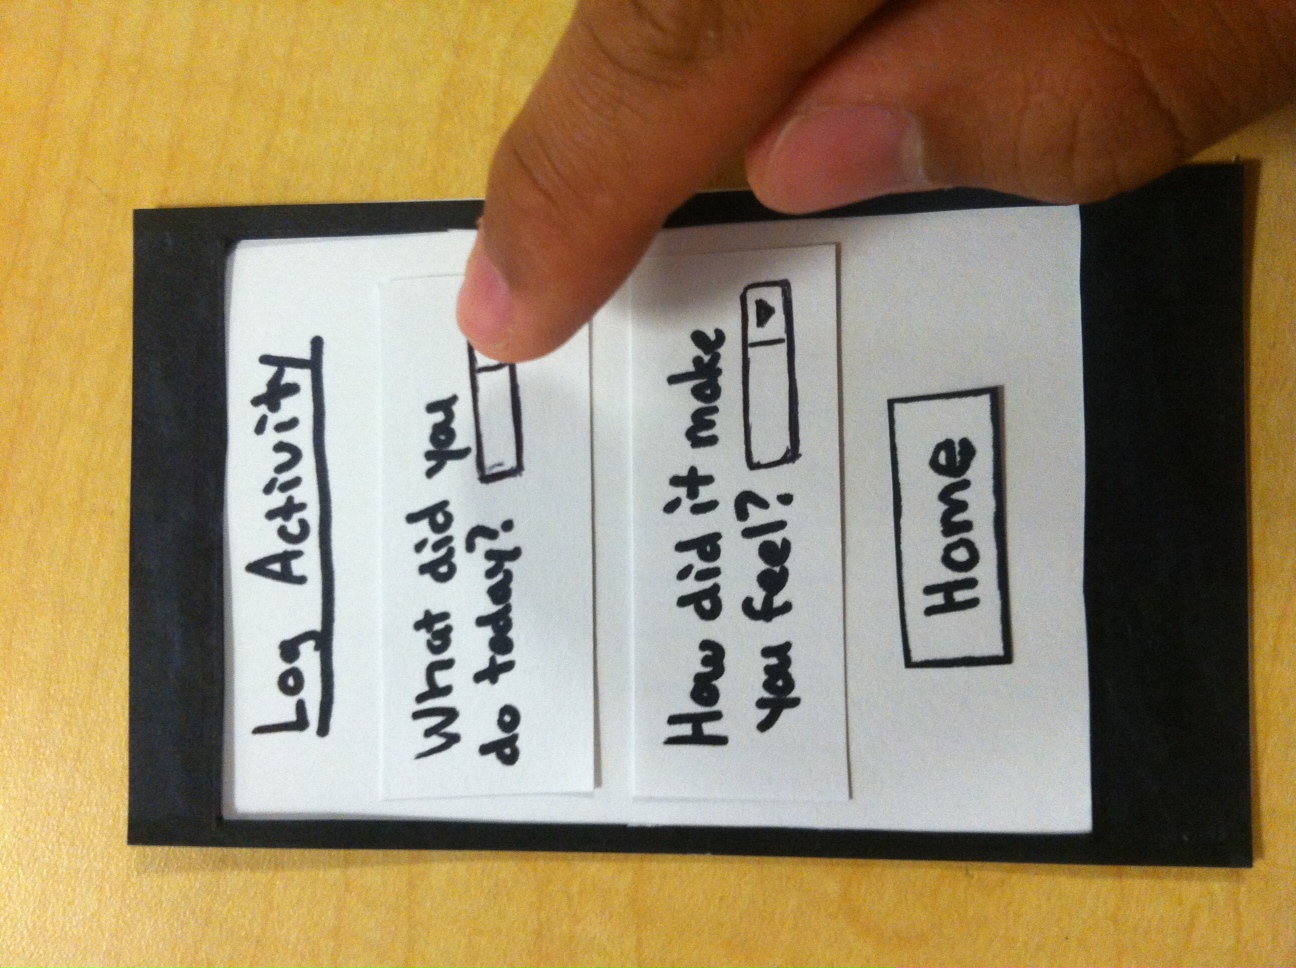 Log Activity
What did you
do today?
How did it make
you feel?
Home